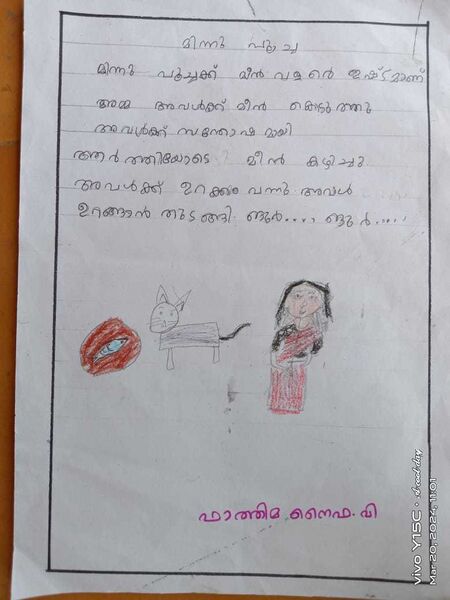 മിന്നു പൂച്ച
മിന്നു പൂച്ചക്ക് മീൻ വളരെ ഇഷ്ടമാണ്
അമ്മ അവൾക്ക് മീൻ കൊടുത്തു
അവൾക്ക് സന്തോഷമായി
ആർത്തിയോടെ മീൻ കഴിച്ചു
അവൾക്ക് ഉറക്കം വന്നു അവൾ
ഉറങ്ങാൻ തുടങ്ങി ങുർ.... ങുർ.....
ഫാത്തിമ നൈഫ. വി
vivo Y15C
Mar 20, 2024, 11:01